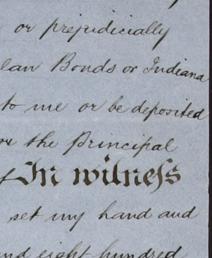 or prejudicially
lean Bonds or Indiana
to me or be deposited
or the Principal
of In witneſs
set my hand and
nd eight hundred